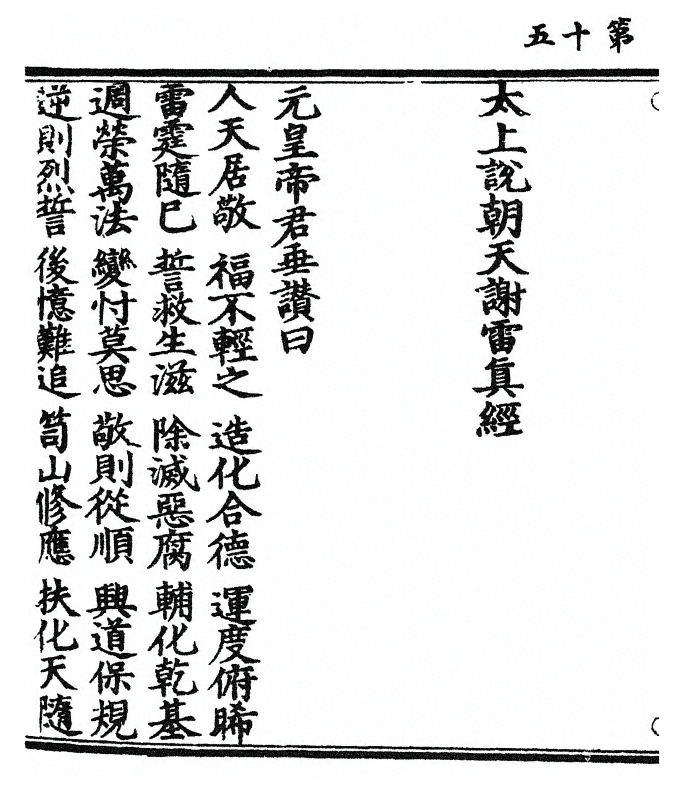 第十五
太上說朝天謝雷真經
元皇帝君垂讚曰
人天居敬 福不輕之 造化合德 運度俯晞
雷霆隨巳 誓救生滋 除滅惡腐 輔化乾基
週榮萬法 變忖莫思 敬則從順 興道保規
逆則烈誓 後憶難追 茍山修應 扶化天隨